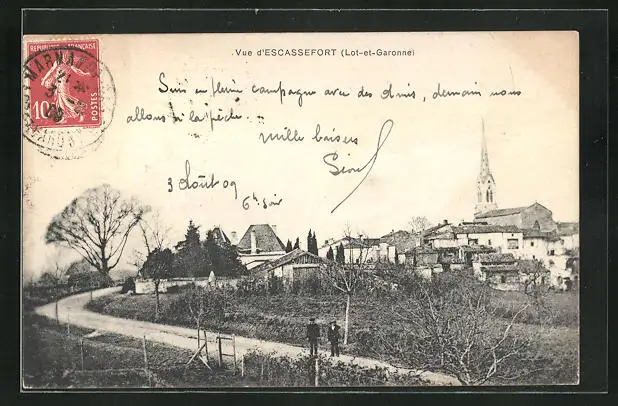 Vue d'ESCASSEFORT (Lot-et-Garonne)
REPUBLIQUE FRANÇAISE
10 c POSTES
Suis en pleine campagne avec des amis, demain nous
allons à la pêche.
mille baisers
3 Août 09
6h soir